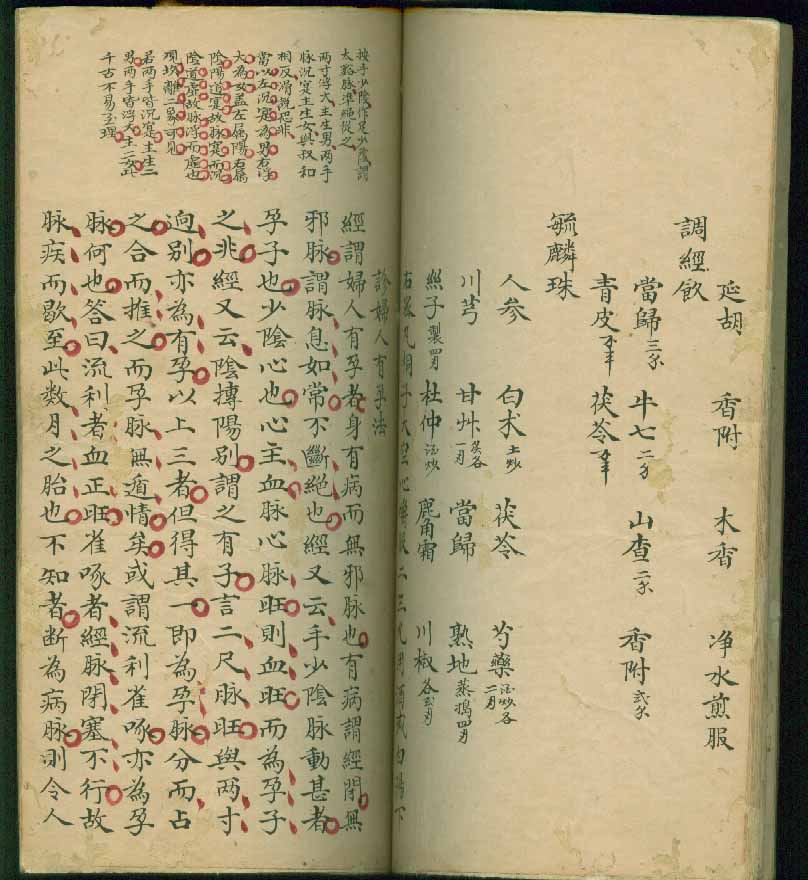 延胡 香附 木香 净水煎服
調經飲
當歸三錢 牛七二錢 山查二錢 香附弍錢
青皮錢半 茯苓錢半
毓麟珠
人参 白术土炒 茯苓 芍藥酒炒各二両
川芎 甘艸炙各一両 當歸 熟地蒸搗四両
絲子製四両 杜仲酒炒 鹿角霜 川椒各弍両
右爲 桐子大空心 二三 酒或白湯下
按手少陰作足少陰謂
太谿脉準絕從之
两寸浮大主生男两手
脉沉寔主生女與叔和
相反滑說恐非
當以左沉寔為男右浮
大為女盖左属陽右属
陰陽道寔故脉寔而沉
陰道虛故脉浮而虛也
現坎離二象可見
若两手皆沉寔主生二
男两手皆浮大主二女此
千古不易至理
診婦人有孕法
經謂婦人有孕者身有病而無邪脉也有病謂經閉無
邪脉謂脉息如常不斷絕也經又云手少陰脉動甚者
孕子也少陰心也心主血脉心脉旺則血旺而為孕子
之兆經又云陰摶陽別謂之有子言二尺脉旺與两寸
逈別亦為有孕以上三者但得其一即為孕脉分而占
之合而推之而孕脉無遁情矣或謂流利雀啄亦為孕
脉何也答曰流利者血正旺雀啄者經脉閉塞不行故
脉疾而歇至此数月之胎也不知者断為病脉則令人